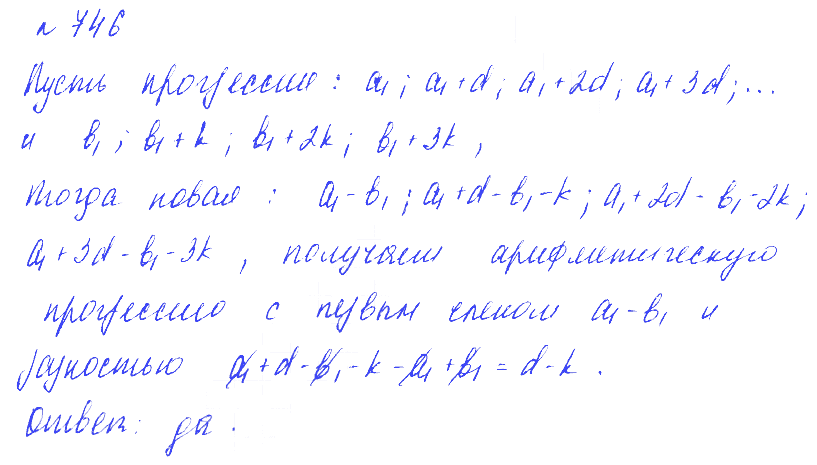 № 746
Пусть прогрессии: a₁; a₁+d; a₁+2d; a₁+3d; ...
и b₁; b₁+k; b₁+2k; b₁+3k,
тогда новая: a₁-b₁; a₁+d-b₁-k; a₁+2d-b₁-2k;
a₁+3d-b₁-3k, получаем арифметическую
прогрессию с первым членом a₁-b₁ и
разностью a₁+d-b₁-k-a₁+b₁=d-k.
Ответ: да.